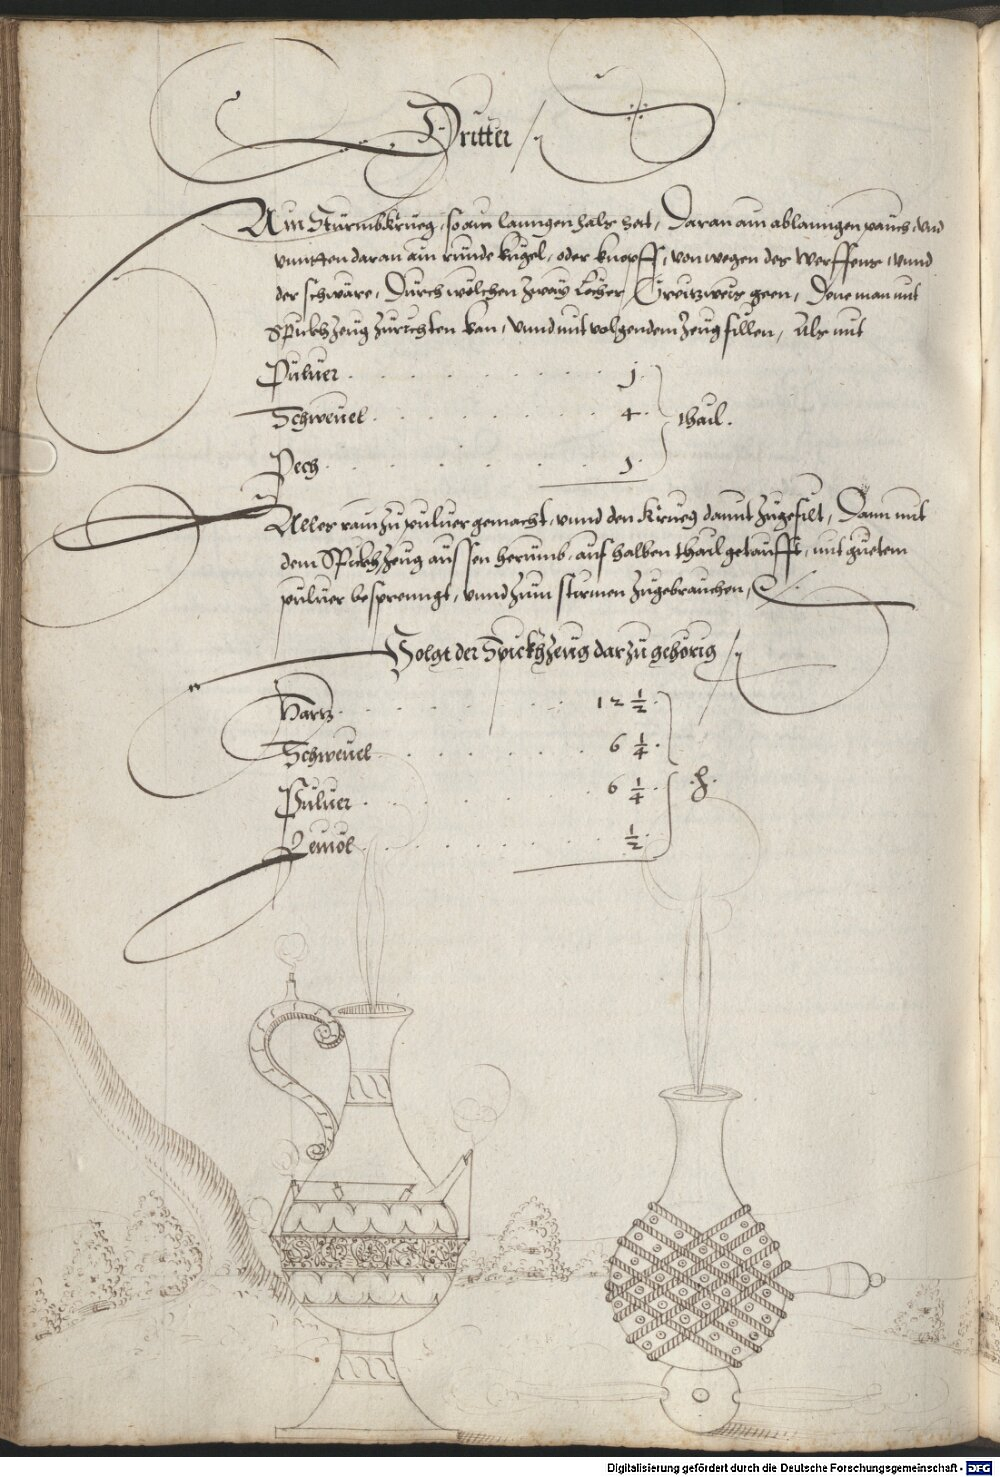 Dritter
Ain Sturmbkrueg, so ain lanngen hals hat, Daran ain ablanngen pauch, vnd
vnntten daran ain runde kugel, oder knopff, von wegen des werffens, vnnd
der schwäre, Durch wölchen zway löcher Creutzweis geen, Dene man mit
Spickhzeug zurichten kan, vnnd mit volgendem zeug fillen, Als mit
Puluer . . . . . . . 1.
Schweuel . . . . . . . 4. thail.
Pech . . . . . . . 1.
Alles rain zu puluer gemacht, vnnd den Krueg damit zugefilt, Dann mit
dem Spickhzeug aussen herumb, auf halben thail getaufft, mit guetem
puluer besprenngt, vnnd zum stirmen zugebrauchen,
Volgt der Spickhzeug darzu gehörig
Hartz . . . . . . 12 1/2.
Schweuel . . . . . . 6 1/4.
Puluer . . . . . . 6 1/4.
Leinöl . . . . . . 1/2.
Digitalisierung gefördert durch die Deutsche Forschungsgemeinschaft - DFG